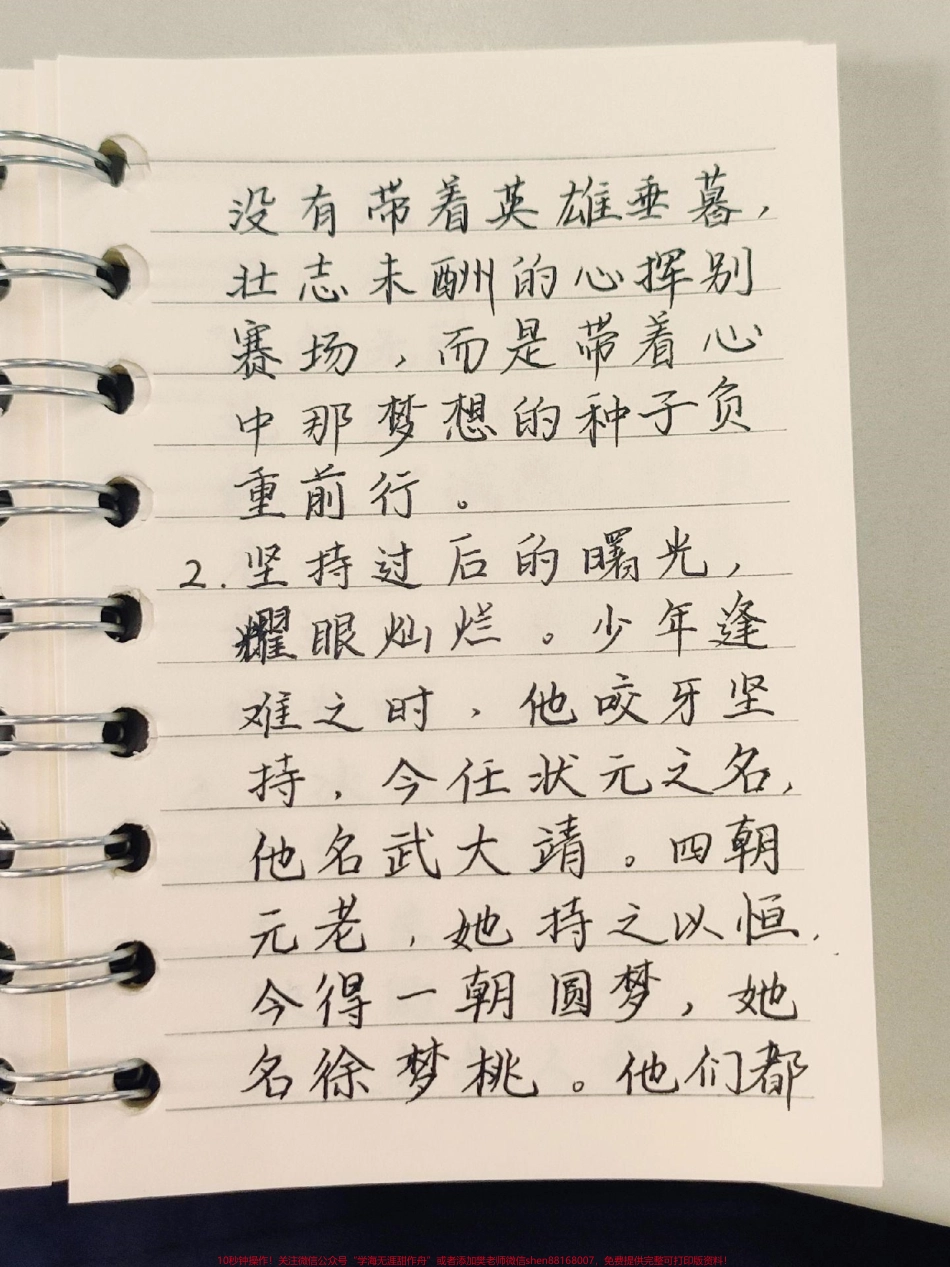 没有带着英雄垂暮，
壮志未酬的心挥别
赛场，而是带着心
中那梦想的种子负
重前行。
2.坚持过后的曙光，
耀眼灿烂。少年逢
难之时，他咬牙坚
持，今任状元之名，
他名武大靖。四朝
元老，她持之以恒，
今得一朝圆梦，她
名徐梦桃。他们都
10秒钟操作！关注微信公众号“学海无涯甜作舟”或者添加樊老师微信shen88168007，免费提供完整可打印版资料！